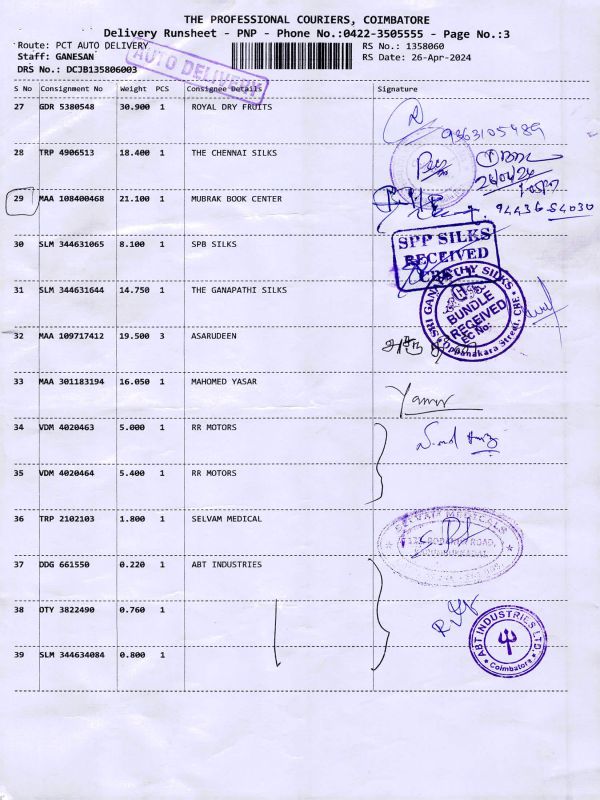 THE PROFESSIONAL COURIERS, COIMBATORE
Delivery Runsheet - PNP - Phone No.:0422-3505555 - Page No.:3
Route: PCT AUTO DELIVERY
RS No.: 1358060
Staff: GANESAN
RS Date: 26-Apr-2024
DRS No.: DCJB135806003
AUTO DELIVERY
S No Consignment No Weight PCS Consignee Details Signature
27 GDR 5380548 30.900 1 ROYAL DRY FRUITS
9363105489
28 TRP 4906513 18.400 1 THE CHENNAI SILKS
26/04/24
29 MAA 108400468 21.100 1 MUBRAK BOOK CENTER
94436 54030
30 SLM 344631065 8.100 1 SPB SILKS
SPP SILKS
RECEIVED
CBE
31 SLM 344631644 14.750 1 THE GANAPATHI SILKS
BUNDLE
RECEIVED
32 MAA 109717412 19.500 3 ASARUDEEN
33 MAA 301183194 16.050 1 MAHOMED YASAR
34 VDM 4020463 5.000 1 RR MOTORS
35 VDM 4020464 5.400 1 RR MOTORS
36 TRP 2102103 1.800 1 SELVAM MEDICAL
SELVAM MEDICALS
37 DDG 661550 0.220 1 ABT INDUSTRIES
38 DTY 3822490 0.760 1
ABT INDUSTRIES LTD.
Coimbatore
39 SLM 344634084 0.800 1